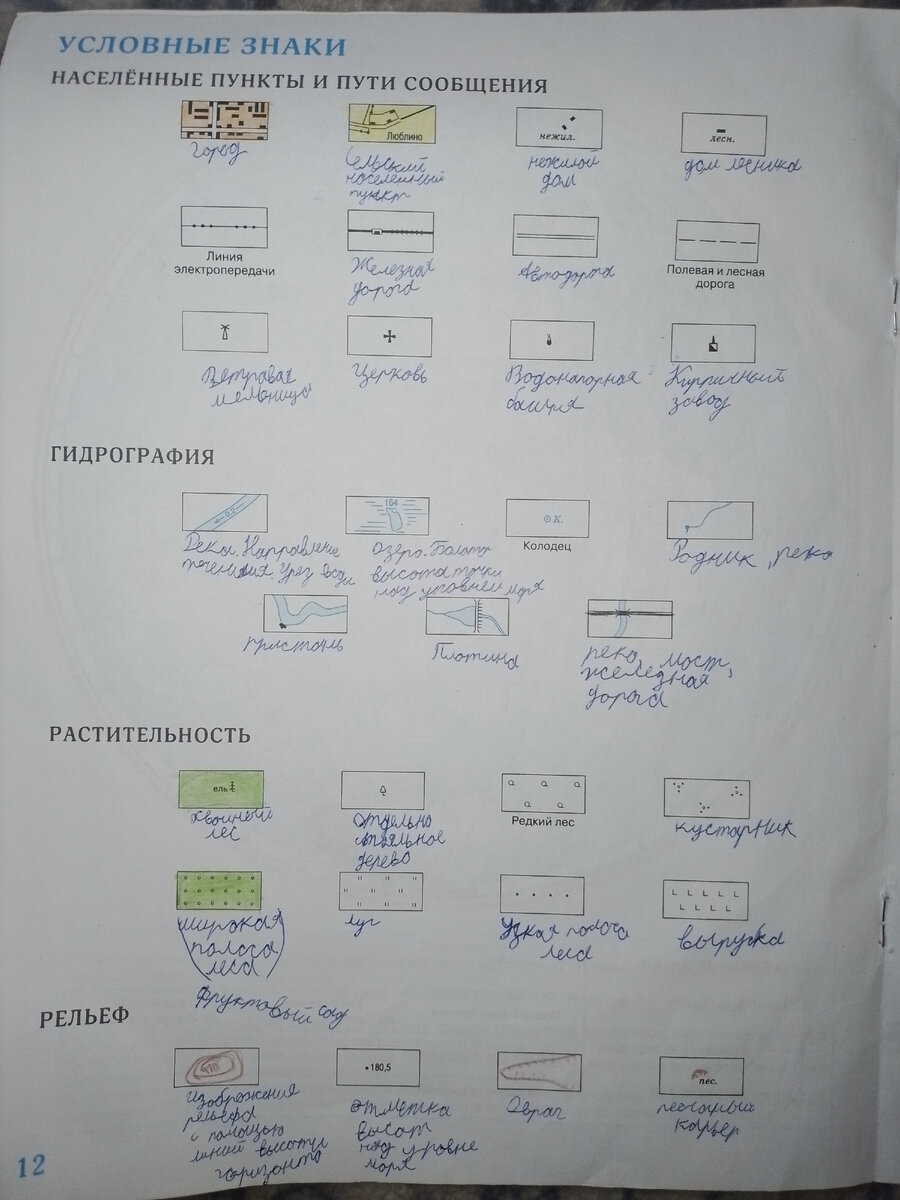 УСЛОВНЫЕ ЗНАКИ
НАСЕЛЁННЫЕ ПУНКТЫ И ПУТИ СООБЩЕНИЯ
Люблино
нежил.
лесн.
город
Сельский
населённый
пункт
нежилой
дом
дом лесника
Линия
электропередачи
Железная
дорога
Автодорга
Полевая и лесная
дорога
Ветравая
мельница
Церковь
Водонапорная
башня
Кирпичный
завод
ГИДРОГРАФИЯ
0,2
164
К.
Река. Направление
течения. Урез воды
Озеро. Болото
высота точки
над уровнем моря
Колодец
Родник, река
пристань
Плотина
река, мост,
железная
дорога
РАСТИТЕЛЬНОСТЬ
ель
хвойный
лес
отдельно
стояльное
дерево
Редкий лес
кустарник
широкая
полоса
леса
Фруктовый сад
луг
Узкая полоса
леса
вырубка
РЕЛЬЕФ
180,5
пес.
изображения
рельефа
с помощью
линий высоты
горизонта
отметка
высот
над уровне
моря
Овраг
песчаный
карьер
12